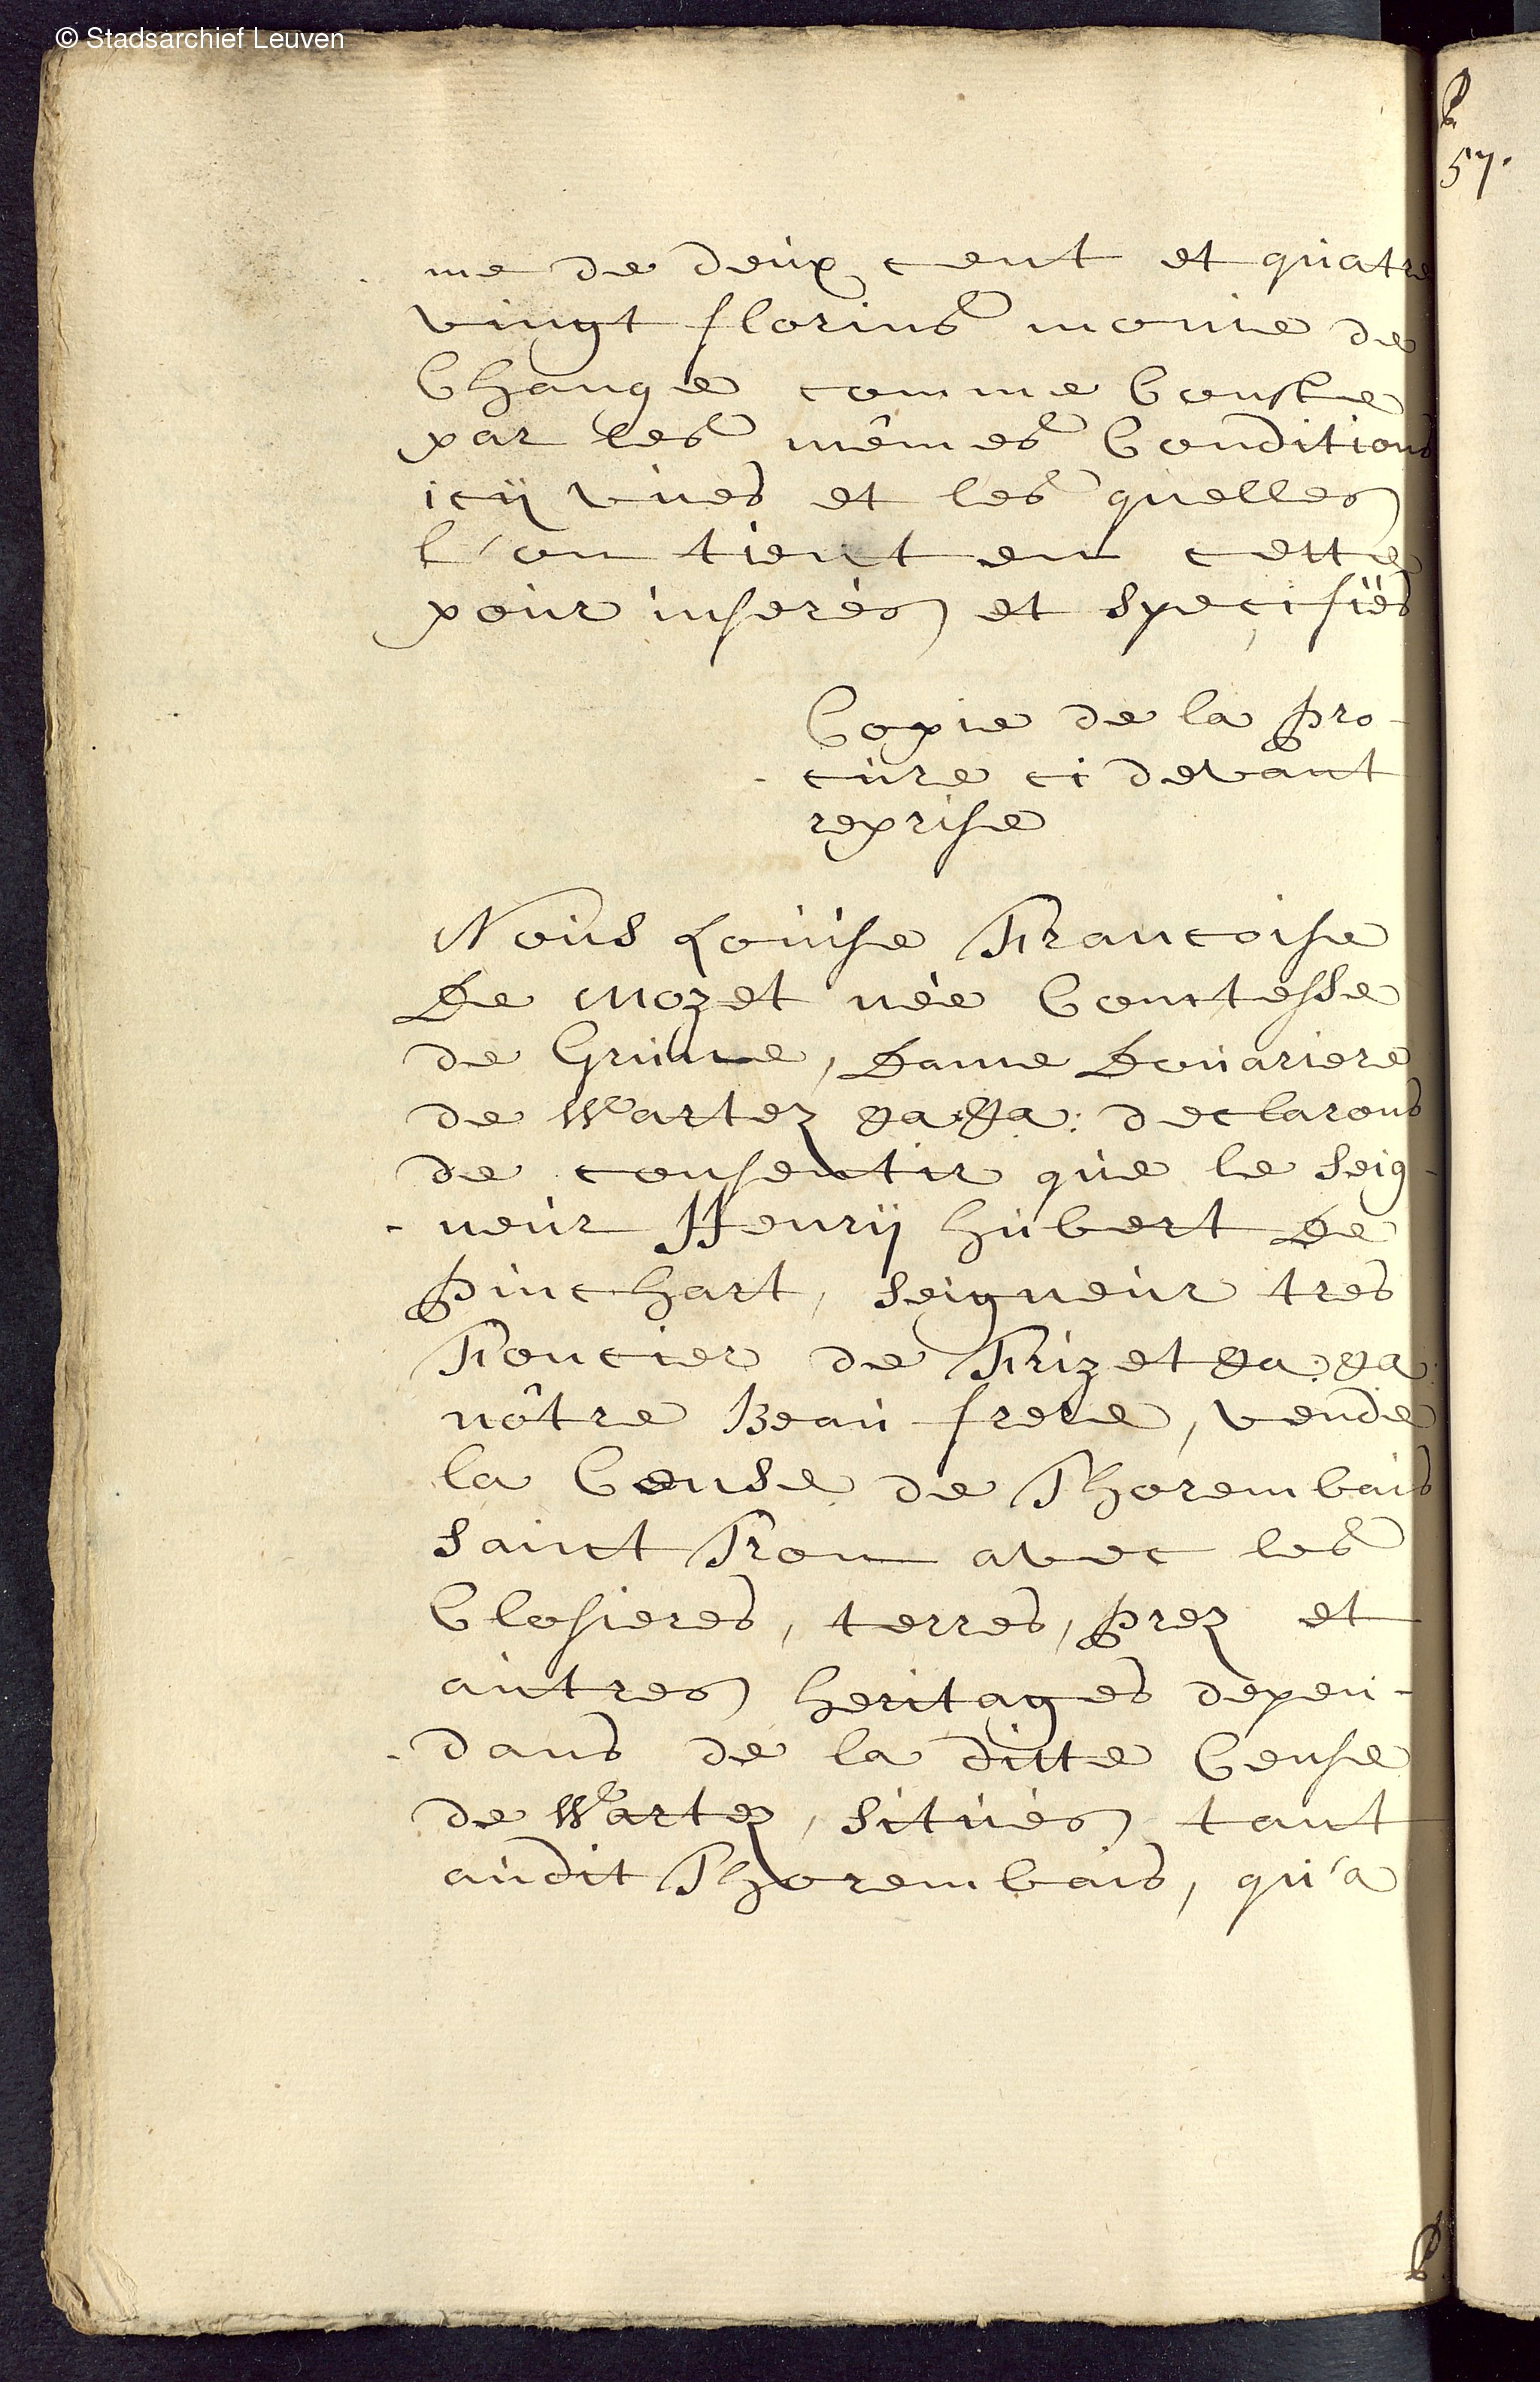 © Stadsarchief Leuven
57.
me de deux cent et quatre
vingt florins monie de
Change comme Conste
par les mêmes Conditions
icÿ vües et les quelles
l'on tient en cette
pour inserés et specifiés
Copie de la pro-
- cure ci devant
reprise
Nous Louise Francoise
De Mozet née Comtesse
de Grünne, Dame Douariere
de Wartez &a:&a: declarons
de consentir que le Seig-
- neur Henrÿ hubert De
Pinchart, Seigneur tres
Foncier de Frizet &a:&a:
nôtre Beau frere, vende
la Cense de Thorembais
Saint Tron avec les
Closieres, terres, prez et
autres heritages depen-
- dans de la ditte Cense
de Wartez, situés tant
audit Thorembais, qu'a